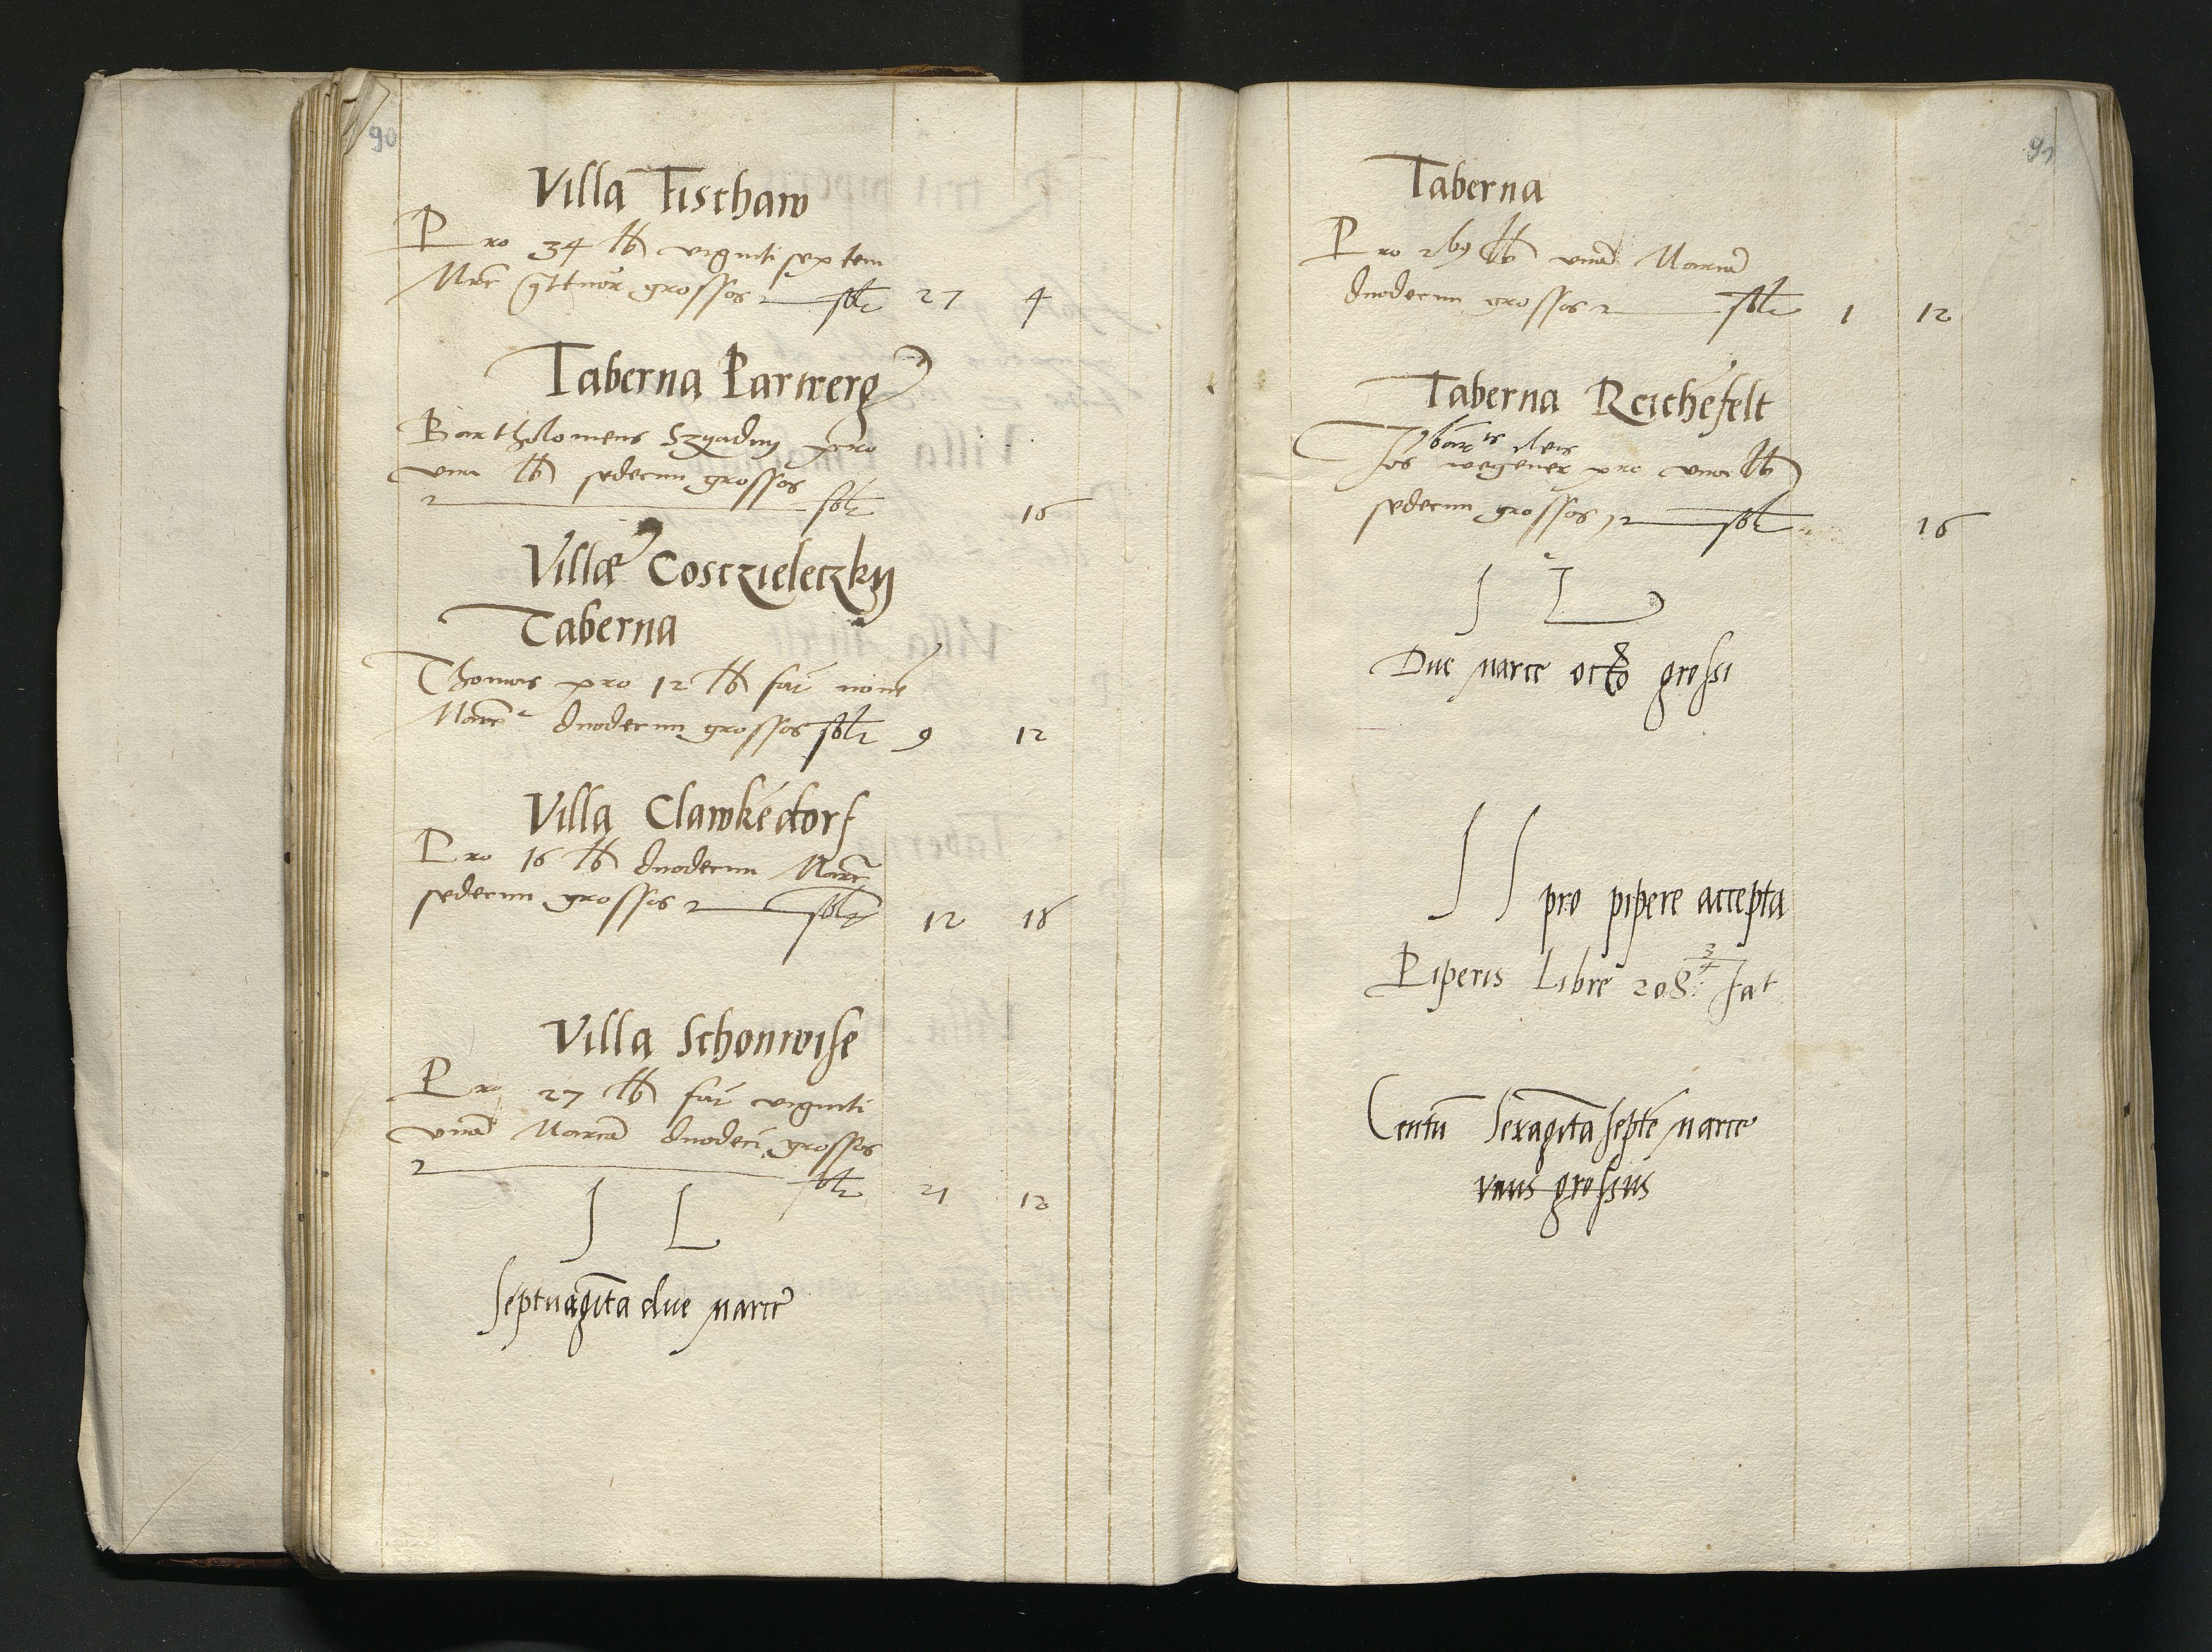 90
Villa Fischaw
Pro 34 lb viginti septem
Mrc qttuor grossos solt 27 4
Taberna Parwerg
Bartholomeus Szyadny pro
una lb sedecim grossos
solt 16
Villae Cosczieleczky
Taberna
Thomas pro 12 lb fat nouē
Marc duodecim grossos solt 9 12
Villa Clawkēdorf
Pro 16 lb duodecim Marc
sedecim grossos solt 12 16
Villa Schonwise
Pro 27 lb fat viginti
vnā Marcā duodeci grossos
solt 21 12
S L
Septuagīta due marce
91
Taberna
Pro lb vnā Marcā
duodecim grossos solt 1 12
Taberna Reichēfelt
wegener pro vna lb
sedecim grossos solt 16
S L
Due marce octo grossi
S S pro pipere accepta
Piperis Libre 208 3/4 fat
Centū Sexagīta septē marce
vnus grossus